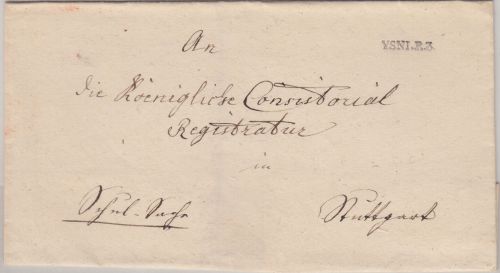 An
YSNI.R.3.
die Koenigliche Consistorial
Registratur
in
Schul-Sache
Stuttgart